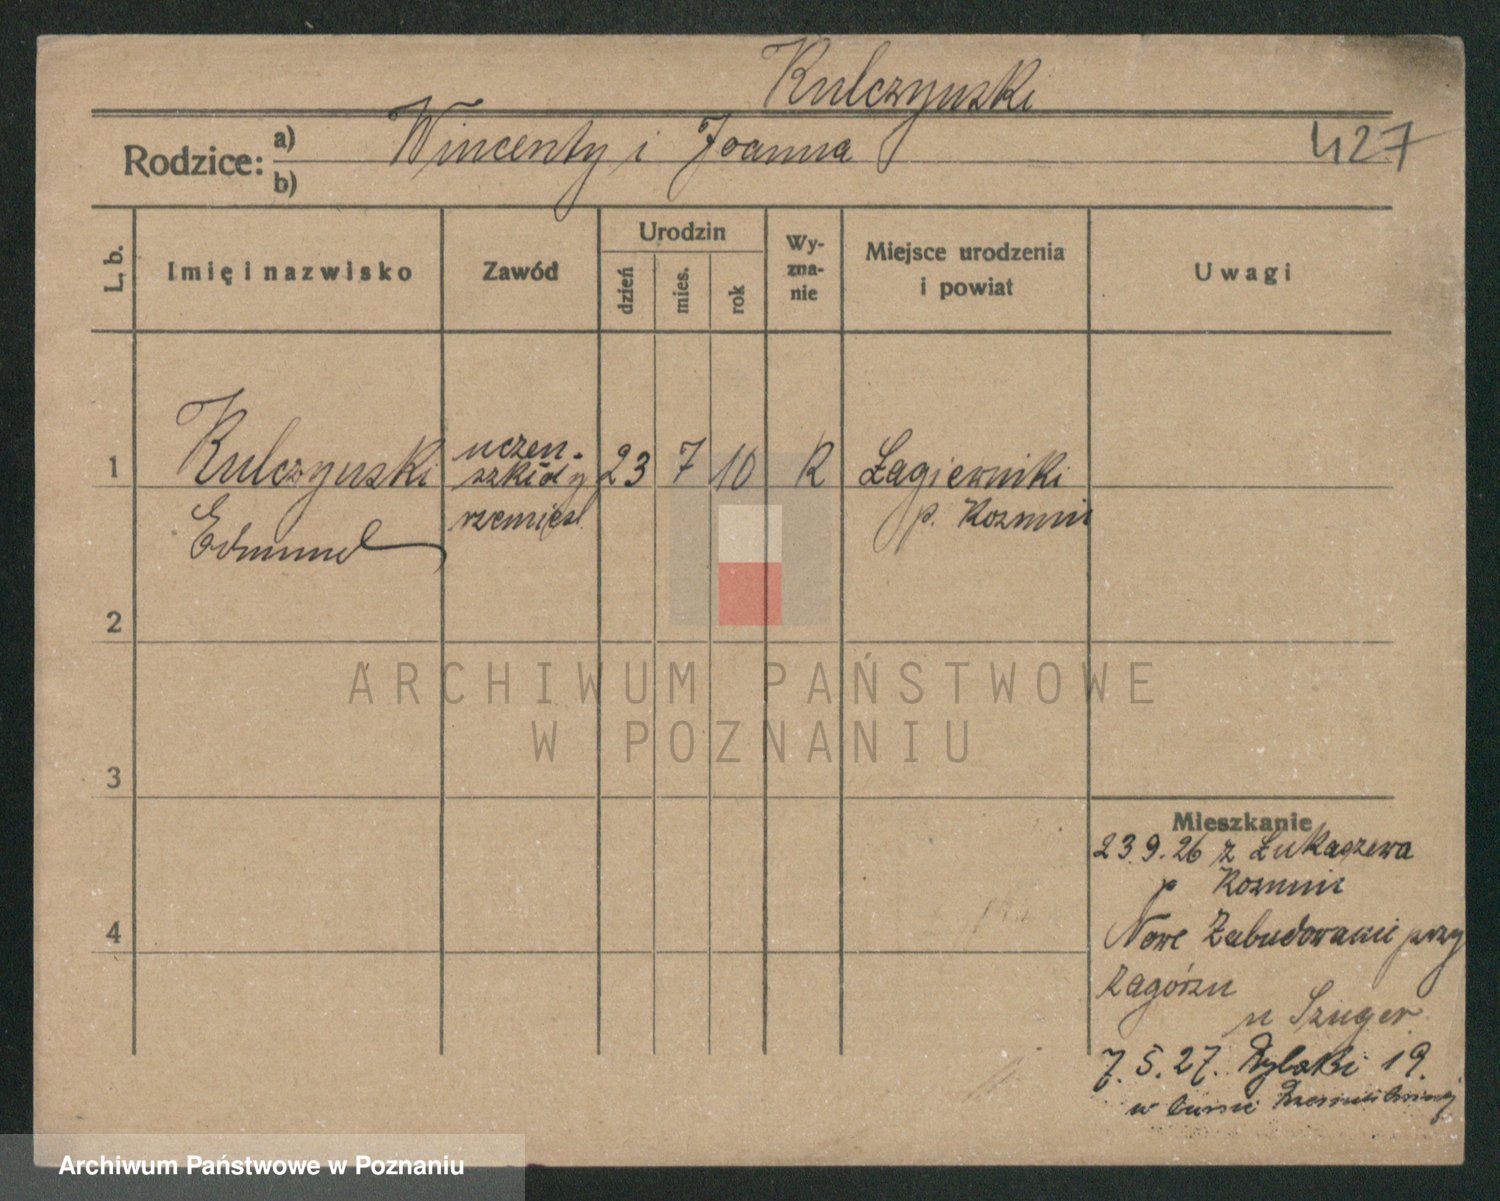 Kulczynski
Rodzice: a) Wincenty i Joanna
b)
427
L. b.
Imię i nazwisko
Zawód
Urodzin
dzień
mies.
rok
Wy-
zna-
nie
Miejsce urodzenia
i powiat
Uwagi
1 Kulczynski uczen. 23 7 10 R Łagierniki
szkoły
Edmund rzemieśl. p. Kozmin
2
ARCHIWUM PAŃSTWOWE
W POZNANIU
3
4
Mieszkanie
23.9.26 z Łukaszewa
p Kozmin
Nowe Zabudowanie przy
Zagórzu
u Szuger
7.5.27. Rybaki 19.
w
Archiwum Państwowe w Poznaniu